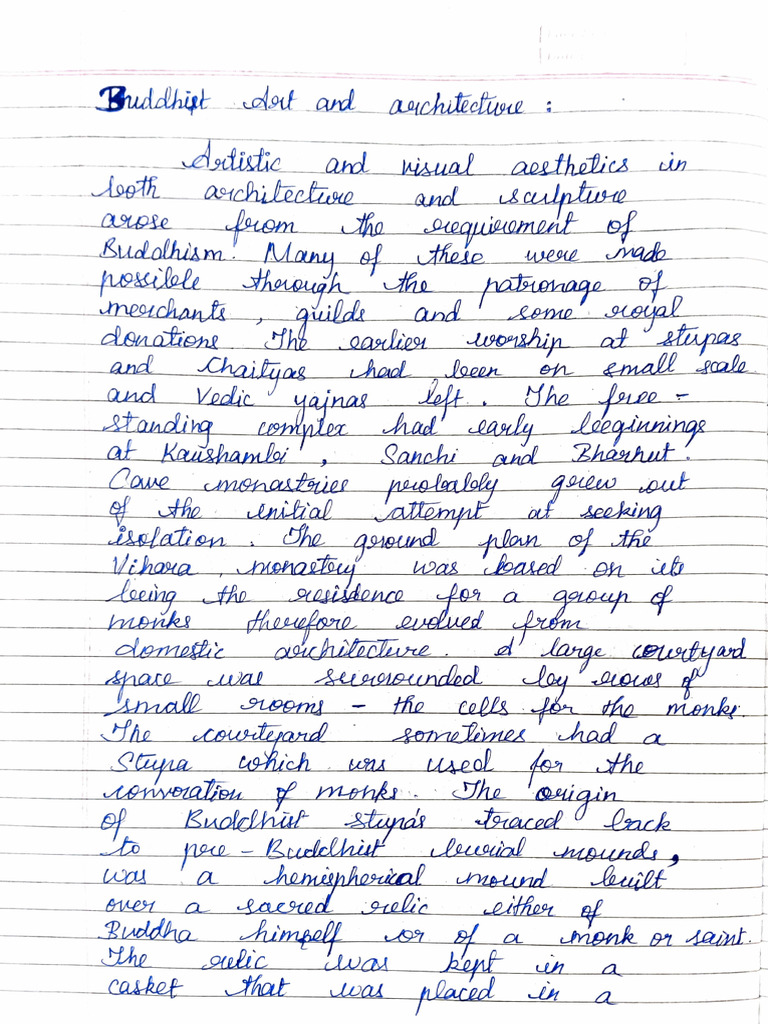 Buddhist Art and architecture :
Artistic and visual aesthetics in
both architecture and sculpture
arose from the requirement of
Buddhism. Many of these were made
possible through the patronage of
merchants, guilds and some royal
donations. The earlier worship at stupas
and Chaityas had been on small scale
and Vedic yajnas left. The free -
standing complex had early beeginnings
at Kaushambi, Sanchi and Bharhut.
Cave monastries probably grew out
of the initial attempt at seeking
isolation. The ground plan of the
Vihara, monastery was based on its
being the residence for a group of
monks therefore evolved from
domestic architecture. A large courtyard
space was surrounded by rows of
small rooms - the cells for the monks.
The courtyard sometimes had a
Stupa which was used for the
convocation of monks. The origin
of Buddhist stupas traced back
to pre - Buddhist burial mounds,
was a hemispherical mound built
over a sacred relic either of
Buddha himself or of a monk or saint.
The relic was kept in a
casket that was placed in a